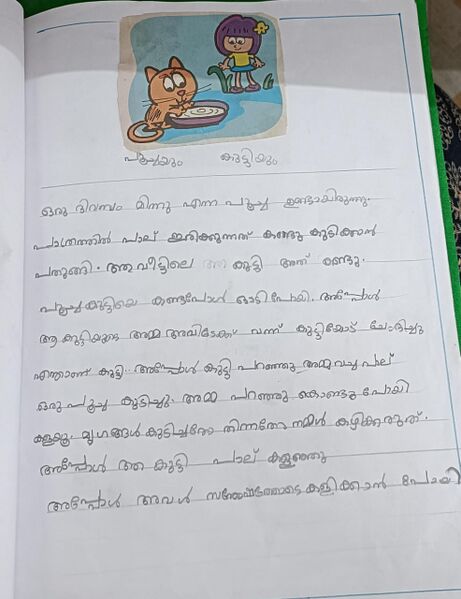 പൂച്ചയും കുട്ടിയും
ഒരു ദിവസം മിന്നു എന്ന പൂച്ച ഉണ്ടായിരുന്നു.
പാത്രത്തിൽ പാല് ഇരിക്കുന്നത് കണ്ടു കുടിക്കാൻ
പതുങ്ങി. ആ വീട്ടിലെ ആ കുട്ടി അത് കണ്ടു.
പൂച്ച കുട്ടിയെ കണ്ടപ്പോൾ ഓടി പോയി. അപ്പോൾ
ആ കുട്ടിയുടെ അമ്മ അവിടേക്ക് വന്ന് കുട്ടിയോട് ചോദിച്ചു
എന്താണ് കുട്ടി. അപ്പോൾ കുട്ടി പറഞ്ഞു അമ്മ വച്ച പാല്
ഒരു പൂച്ച കുടിച്ചു. അമ്മ പറഞ്ഞു കൊണ്ടു പോയി
കളയൂ. മൃഗങ്ങൾ കുടിച്ചതോ തിന്നതോ നമ്മൾ കഴിക്കരുത്.
അപ്പോൾ ആ കുട്ടി പാല് കളഞ്ഞു
അപ്പോൾ അവൾ സന്തോഷത്തോടെ കളിക്കാൻ പോയി